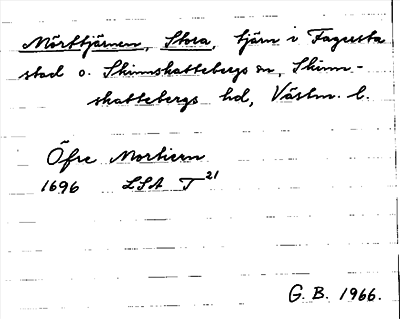 Mörttjärnen, Stora, tjärn i Fagersta
stad o. Skinnskattebergs sn, Skinn-
skattebergs hd, Västm. l.
Öfre Mortiern
1696 LSA T 21
G. B. 1966.